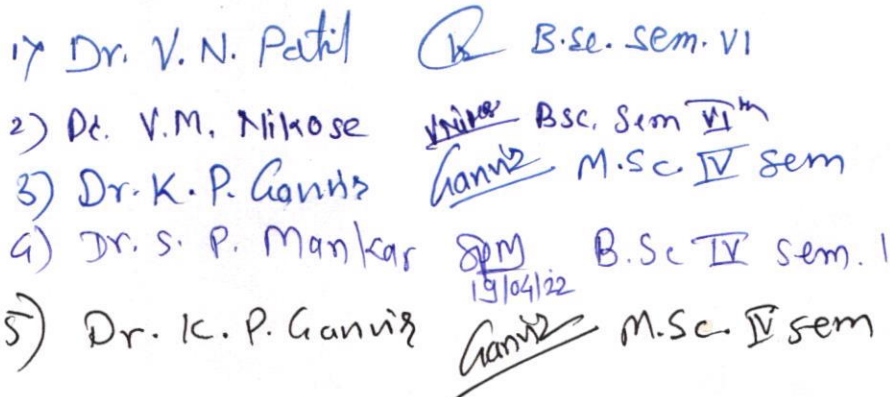 1) Dr. V. N. Patil B.Sc. Sem. VI
2) Dr. V.M. Nikose VNikose BSC. Sem VIth
3) Dr. K. P. Ganvir Ganvir M.Sc. IV Sem
4) Dr. S. P. Mankar SPM B.Sc IV Sem. 1
19/04/22
5) Dr. K. P. Ganvir Ganvir M.Sc. IV sem